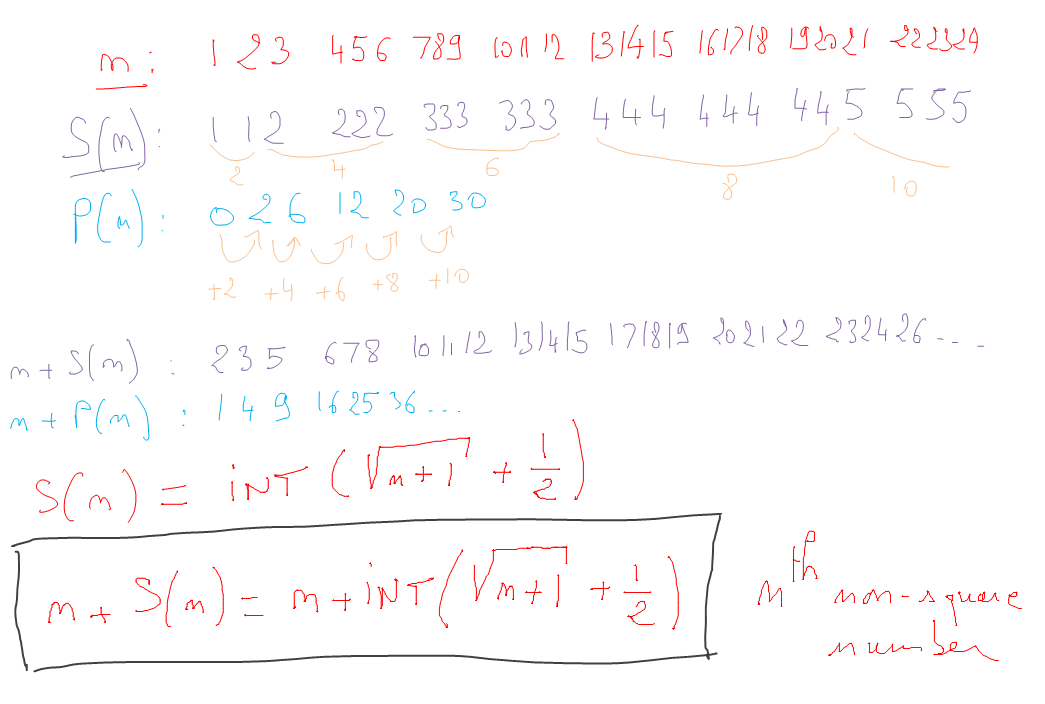 n : 1 2 3 4 5 6 7 8 9 10 11 12 13 14 15 16 17 18 19 20 21 22 23 24
S(n) : 1 1 2 2 2 2 3 3 3 3 3 3 4 4 4 4 4 4 4 4 5 5 5 5
2 4 6 8 10
P(n) : 0 2 6 12 20 30
+2 +4 +6 +8 +10
n + S(n) : 2 3 5 6 7 8 10 11 12 13 14 15 17 18 19 20 21 22 23 24 26 ....
n + P(n) : 1 4 9 16 25 36 ...
S(n) = INT (√n+1 + 1/2)
n + S(n) = n + INT (√n+1 + 1/2)
nth non-square
number